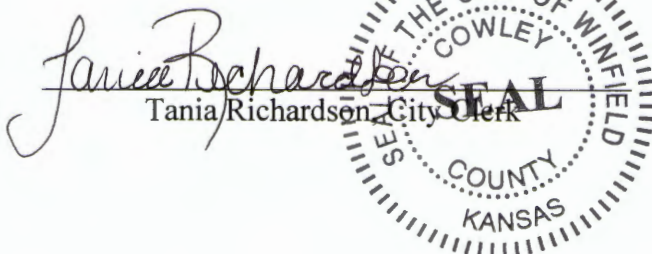 Tania Richardson
Tania Richardson, City Clerk
SEAL OF THE CITY OF WINFIELD
COWLEY
SEAL
COUNTY
KANSAS